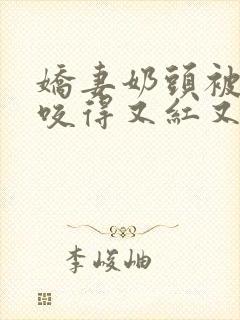 嬌妻奶頭被
咬得又紅又
李峻岫